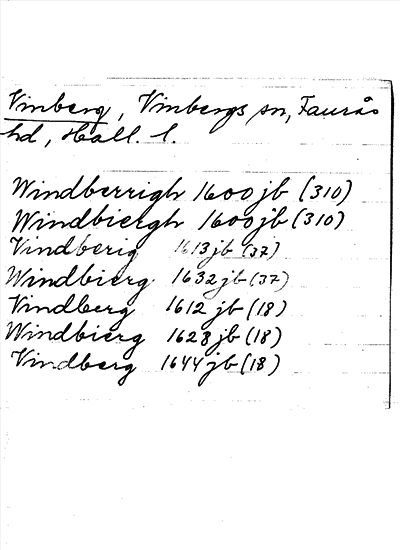 Vinberg, Vinbergs sn, Faurås
hd, Hall. l.
Windberrigh 1600 jb (310)
Windbiergh 1600 jb (310)
Vindberig 1613 jb (37)
Windbierg 1632 jb (37)
Vindberg 1612 jb (18)
Windbierg 1628 jb (18)
Vindberg 1644 jb (18)